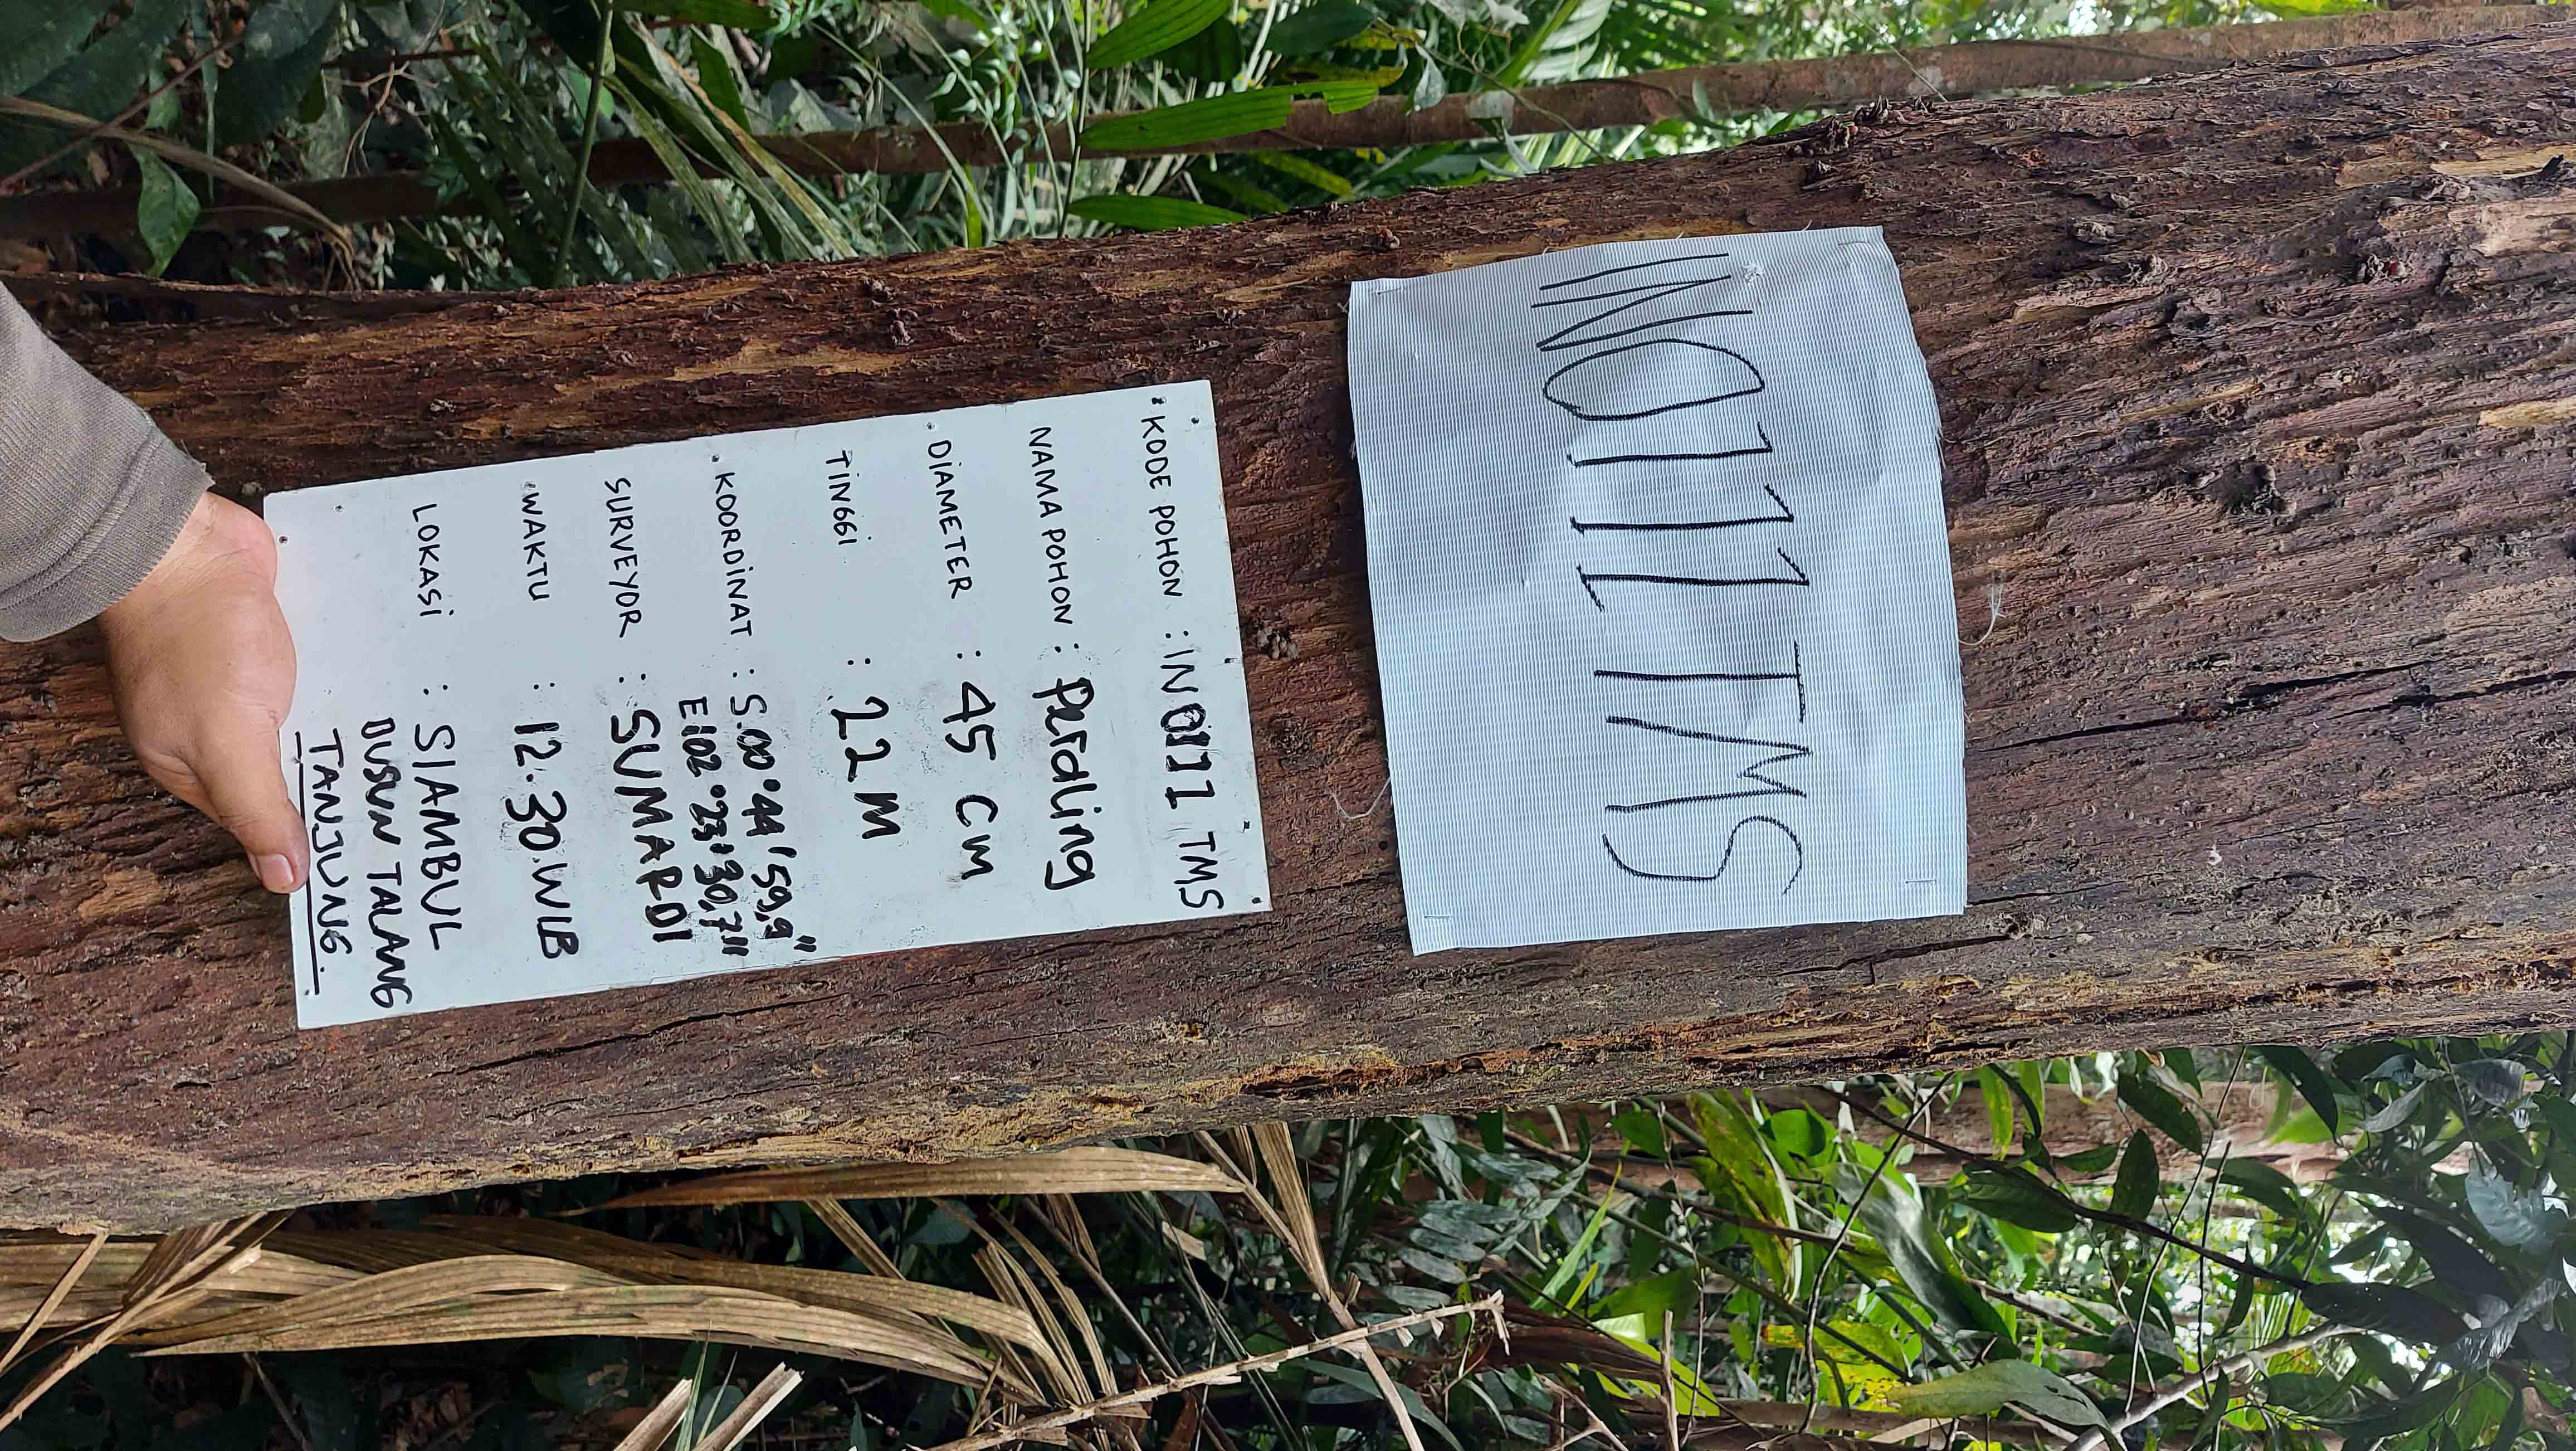 INO111 TMS
KODE POHON : INO111 TMS
NAMA POHON : Perdling
DIAMETER : 45 CM
TINGGI : 22 M
KOORDINAT : S.00°44'59,9"
E102°23'30,7"
SURVEYOR : SUMARDI
WAKTU : 12.30.WIB
LOKASI : SIAMBUL
DUSUN TALANG
TANJUNG.